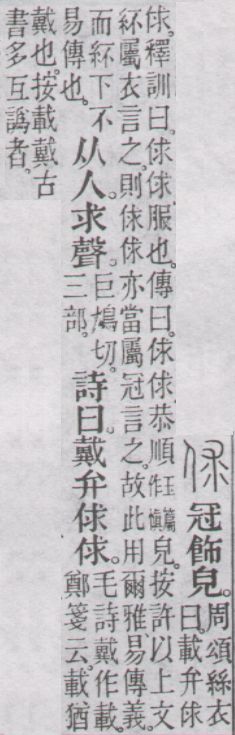 冠飾皃。周頌絲衣曰。載弁俅
俅。釋訓曰。俅俅服也。傳曰。俅俅恭順玉篇作愼皃。按許以上文
紑屬衣言之。則俅俅亦當屬冠言之。故此用爾雅易傳義。
而紑下不易傳也。从人求聲。巨鳩切。三部。詩曰。戴弁俅俅。毛詩戴作載。鄭箋云。載猶
戴也。按載戴古
書多互譌者。